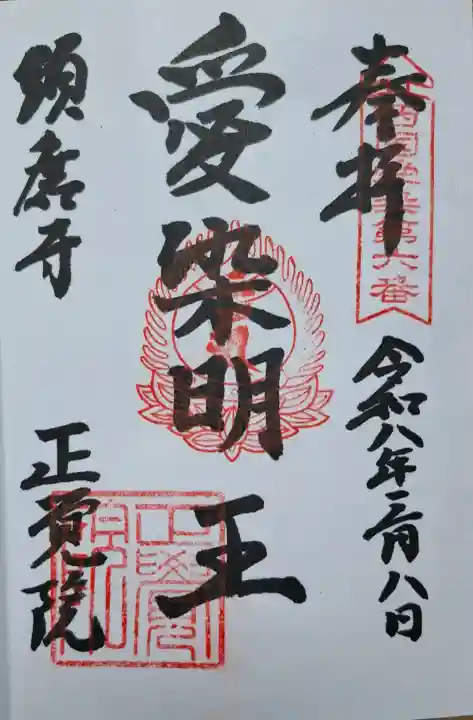 奉拝
第六番
令和八年三月八日
愛染明王
須磨寺
正覚院